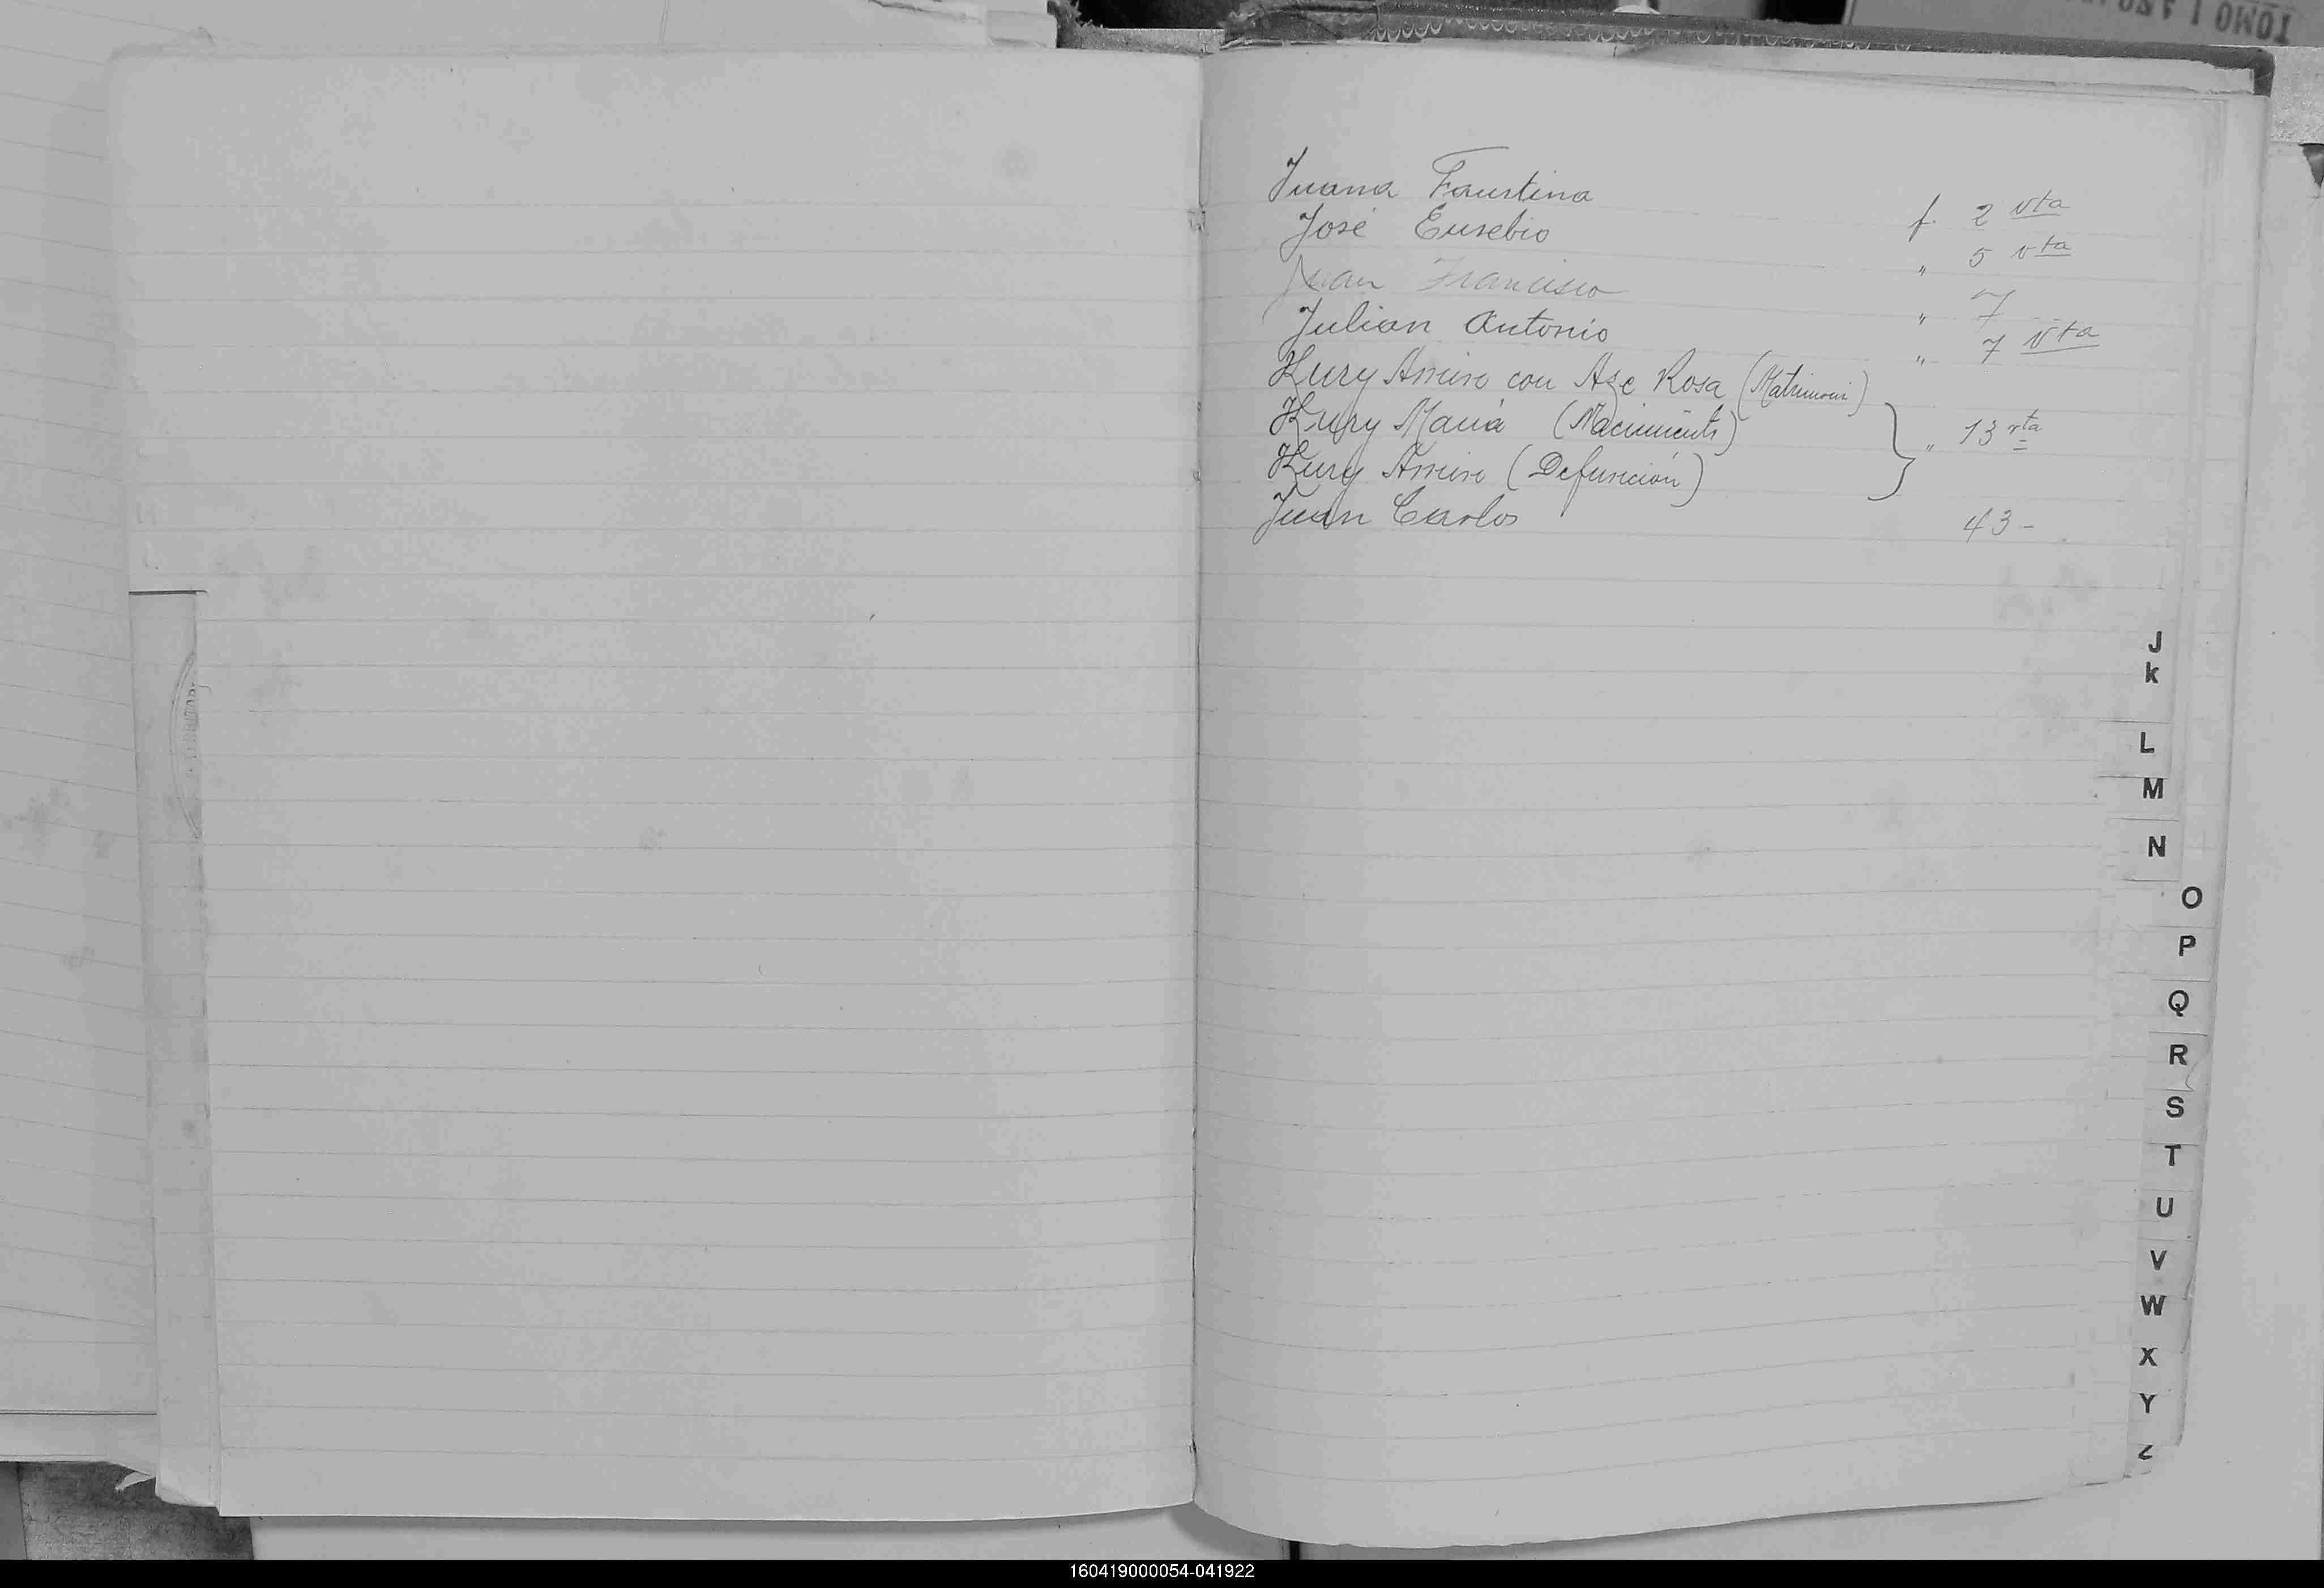 TOMO I
Juana Faustina f. 2 vta
José Eusebio " 5 vta
Juan Francisco " 7
Julian Antonio " 7 vta
Kury Amin con Aze Rosa (Matrimoni)
Kury María (Nacimiento) } " 13 vta
Kury Amin (Defunción)
Juan Carlos 43-
J
k
L
M
N
O
P
Q
R
S
T
U
V
W
X
Y
Z
160419000054-041922